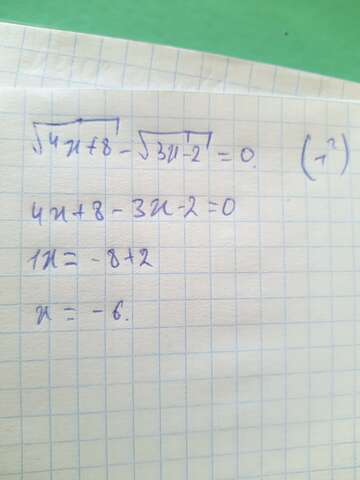 √4x+8 - √3x-2 = 0. (1²)
4x+8 - 3x-2=0
1x = - 8+2
x = - 6.